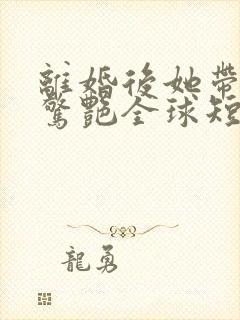 離婚後她帶
驚艷全球短
龍勇